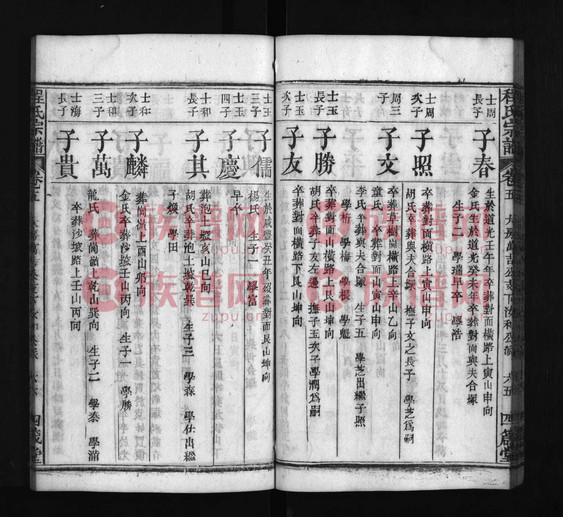 程氏宗譜
卷五
四箴堂
士周
長子
子春
生於道光壬午年卒葬對面橫路上寅山申向
金氏生於道光癸未年卒葬對面與夫合塚
生子二 學瑞早卒 學浩
士周
次子
子照
卒葬對面橫路上寅山申向
卒葬對面與夫合塚 撫子文之長子 學芝爲嗣
周三
子
子文
卒葬草樹崗橫路上辛山乙向
童氏 卒葬對面山寅山申向
李氏 卒葬與夫合塚 生子五 學芝出繼子照
學梅 學根 學魁
士玉
長子
子勝
卒葬對面橫路上艮山坤向
胡氏卒葬子友左邊 撫子玉次子學潤爲嗣
士玉
次子
子友
卒葬對面橫路下艮山坤向
士玉
三子
子儒
楊氏 生子一 學富
士玉
四子
子慶
早卒
士和
長子
子其
葬袍上巽亥山巳向
胡氏卒葬袍上坡乾巽 生子三 學森 學仕出繼
子鰻 學田
士和
次子
子麟
葬崗嶺上酉山卯向
金氏卒葬沙坡壬山丙向 生子一 學勝
士和
三子
子萬
龍氏 葬崗嶺上乾山巽向 生子二 學泰 學湝
士海
長子
子貴
卒葬沙坡路上壬山丙向
程氏宗譜
卷五
四箴堂
族谱网
zupu.cn